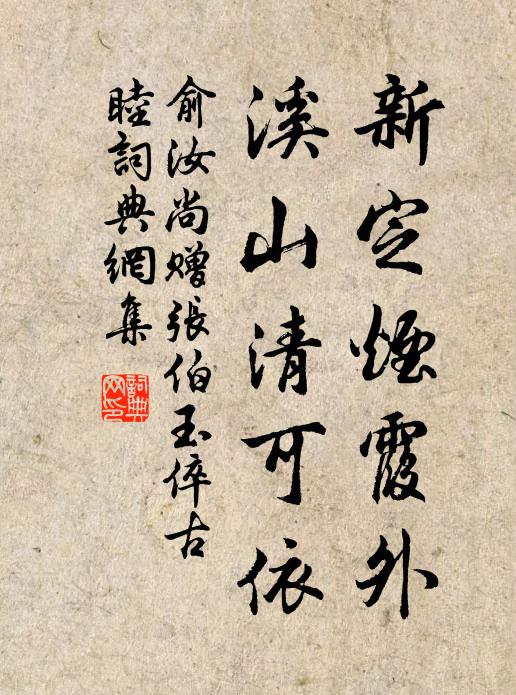 新定煙霞外
溪山清可依
俞汝尚贈張伯玉倅古
睦詞典網集
詞典網印